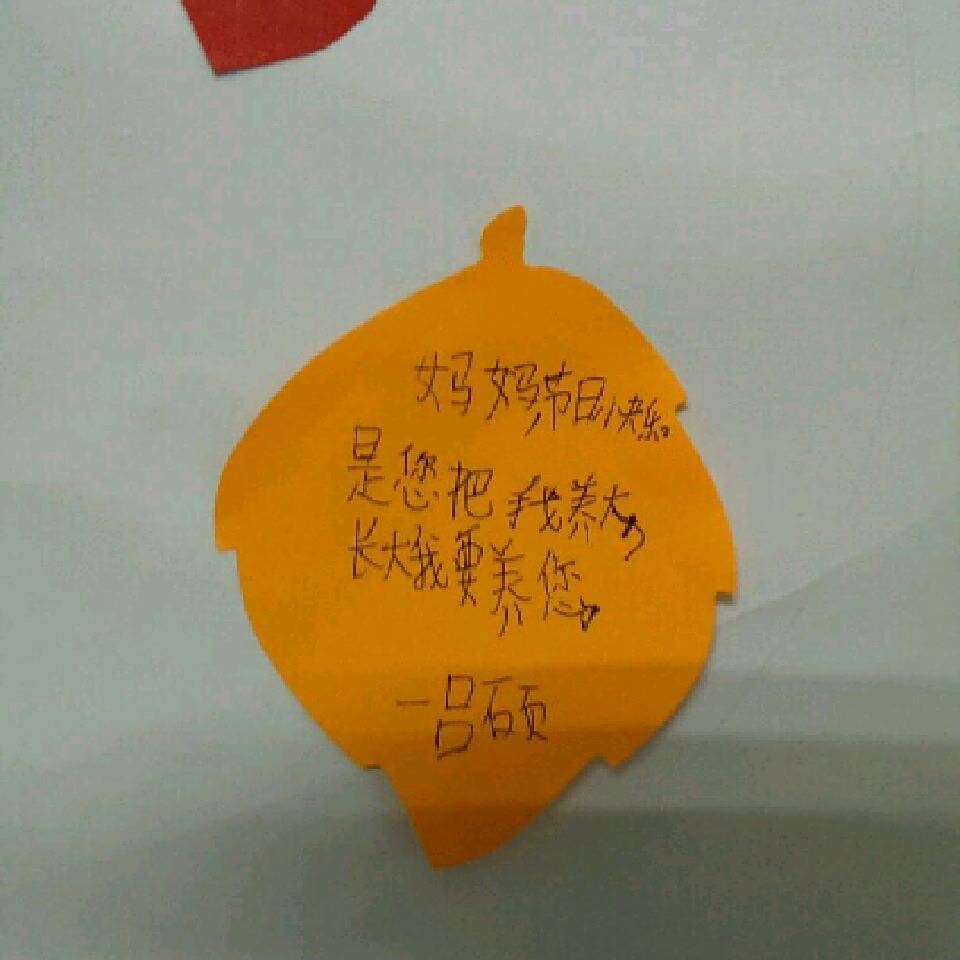 妈妈节日快乐。
是您把我养大,
长大我要养您。
一吕硕